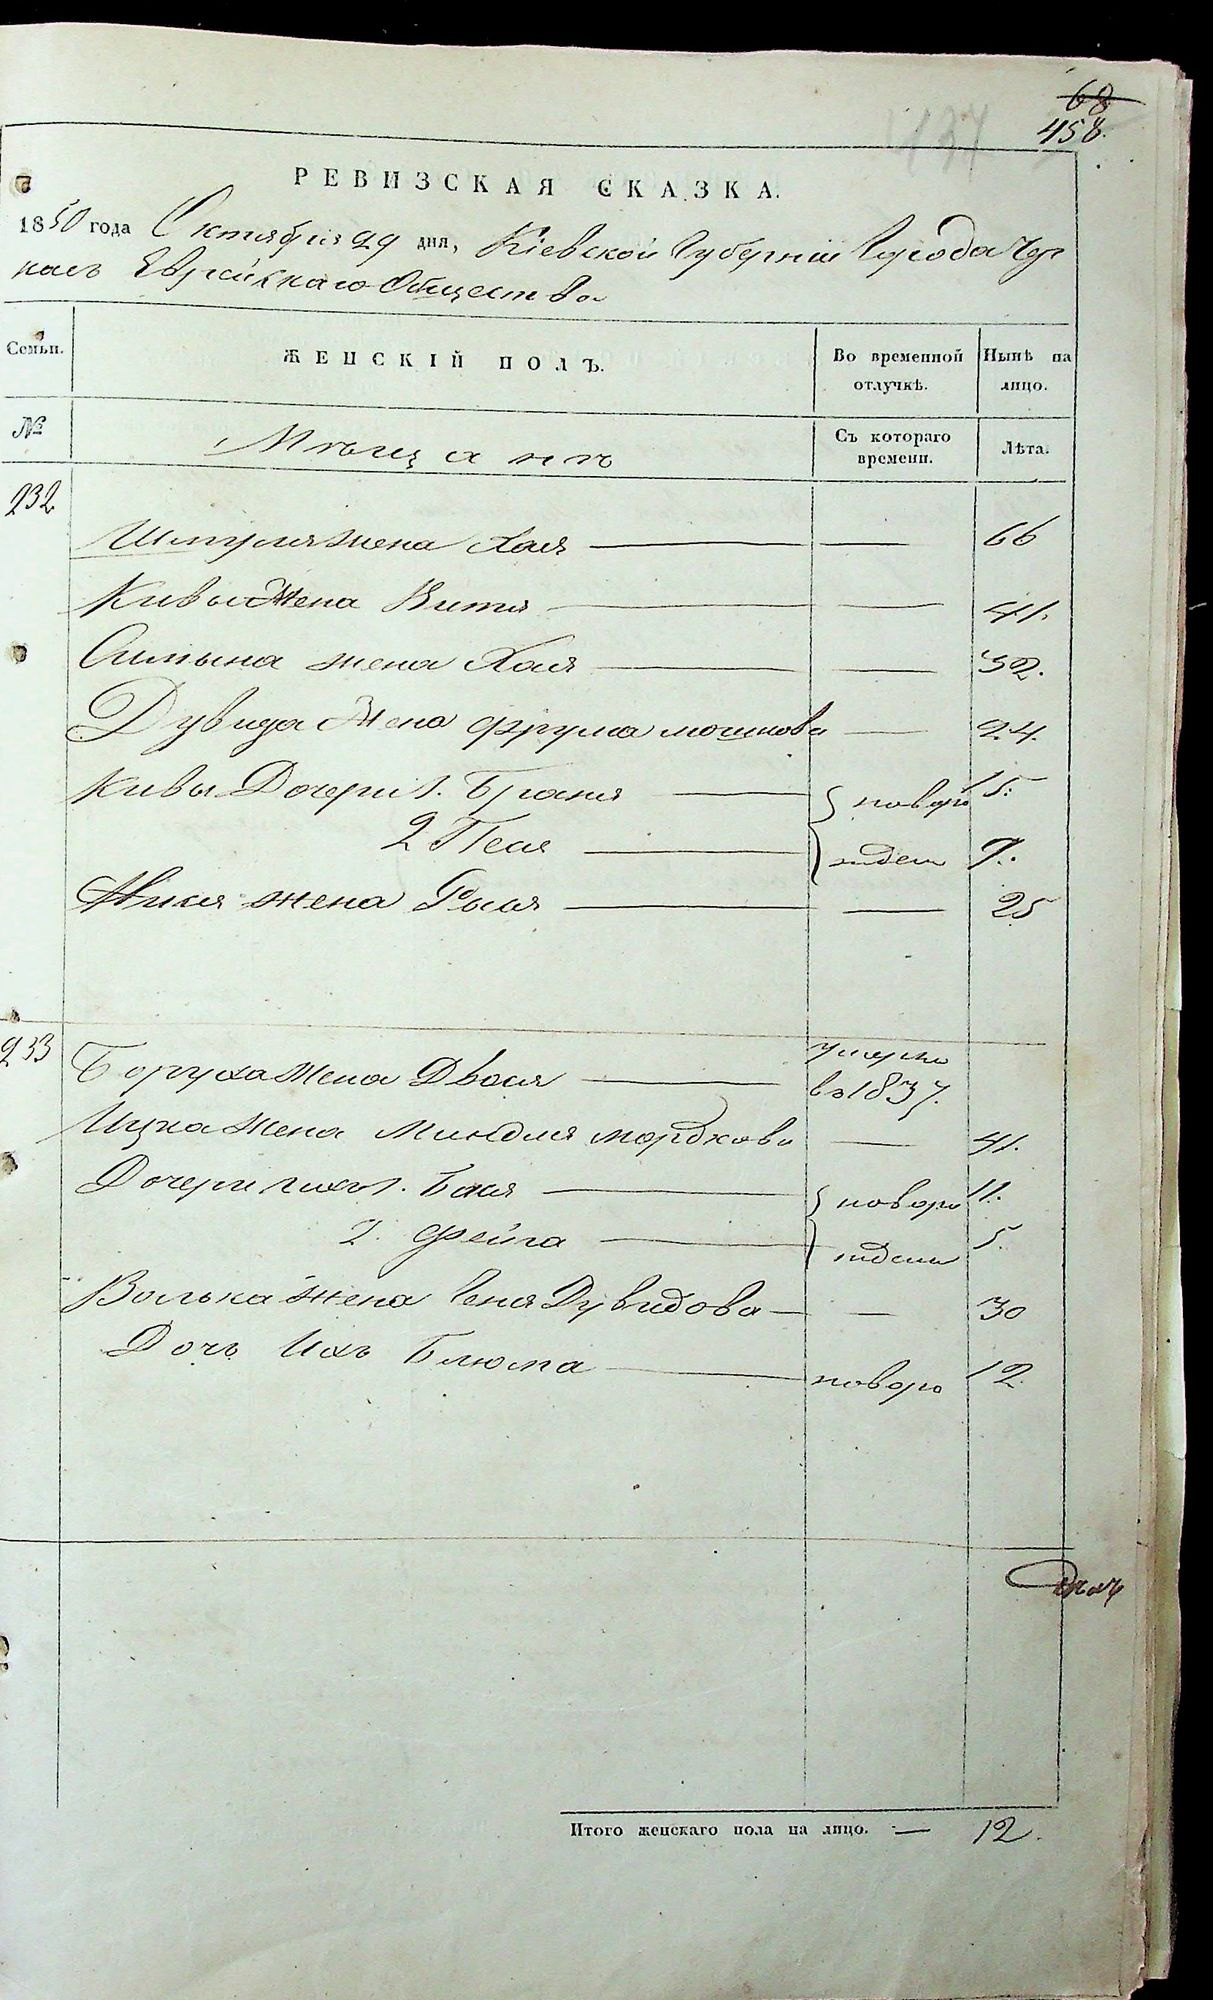 68
458.
137
РЕВИЗСКАЯ СКАЗКА.
1850 года Октября 29 дня, Кіевской Губерніи Города Чер
касъ Еврейскаго Общества
Семьи. ЖЕНСКІЙ ПОЛЪ. Во временной отлучкѣ. Нынѣ на лицо.
№ Мѣщанъ Съ котораго времени. Лѣта.
232
Шмуля жена Хая — — 66
Кивы Жена Витя — — 41.
Симына жена Хая — — 32.
Дувида Жена Фрума мошкова — 24.
Кивы Дочери 1. Браня — новоро 15.
2 Песя — жден 9.
жена Рыся — — 25
233
Боруха Жена Двося — умерла въ 1837.
Ицка Жена Миндля мордхова — 41.
Дочери ихъ 1. Бася — новоро 11.
2. Фейга — ждены 5.
Волька жена Геня Дувидова — — 30
Дочь Ихъ Блюма — новоро 12.
Итого женскаго пола на лицо. — 12.